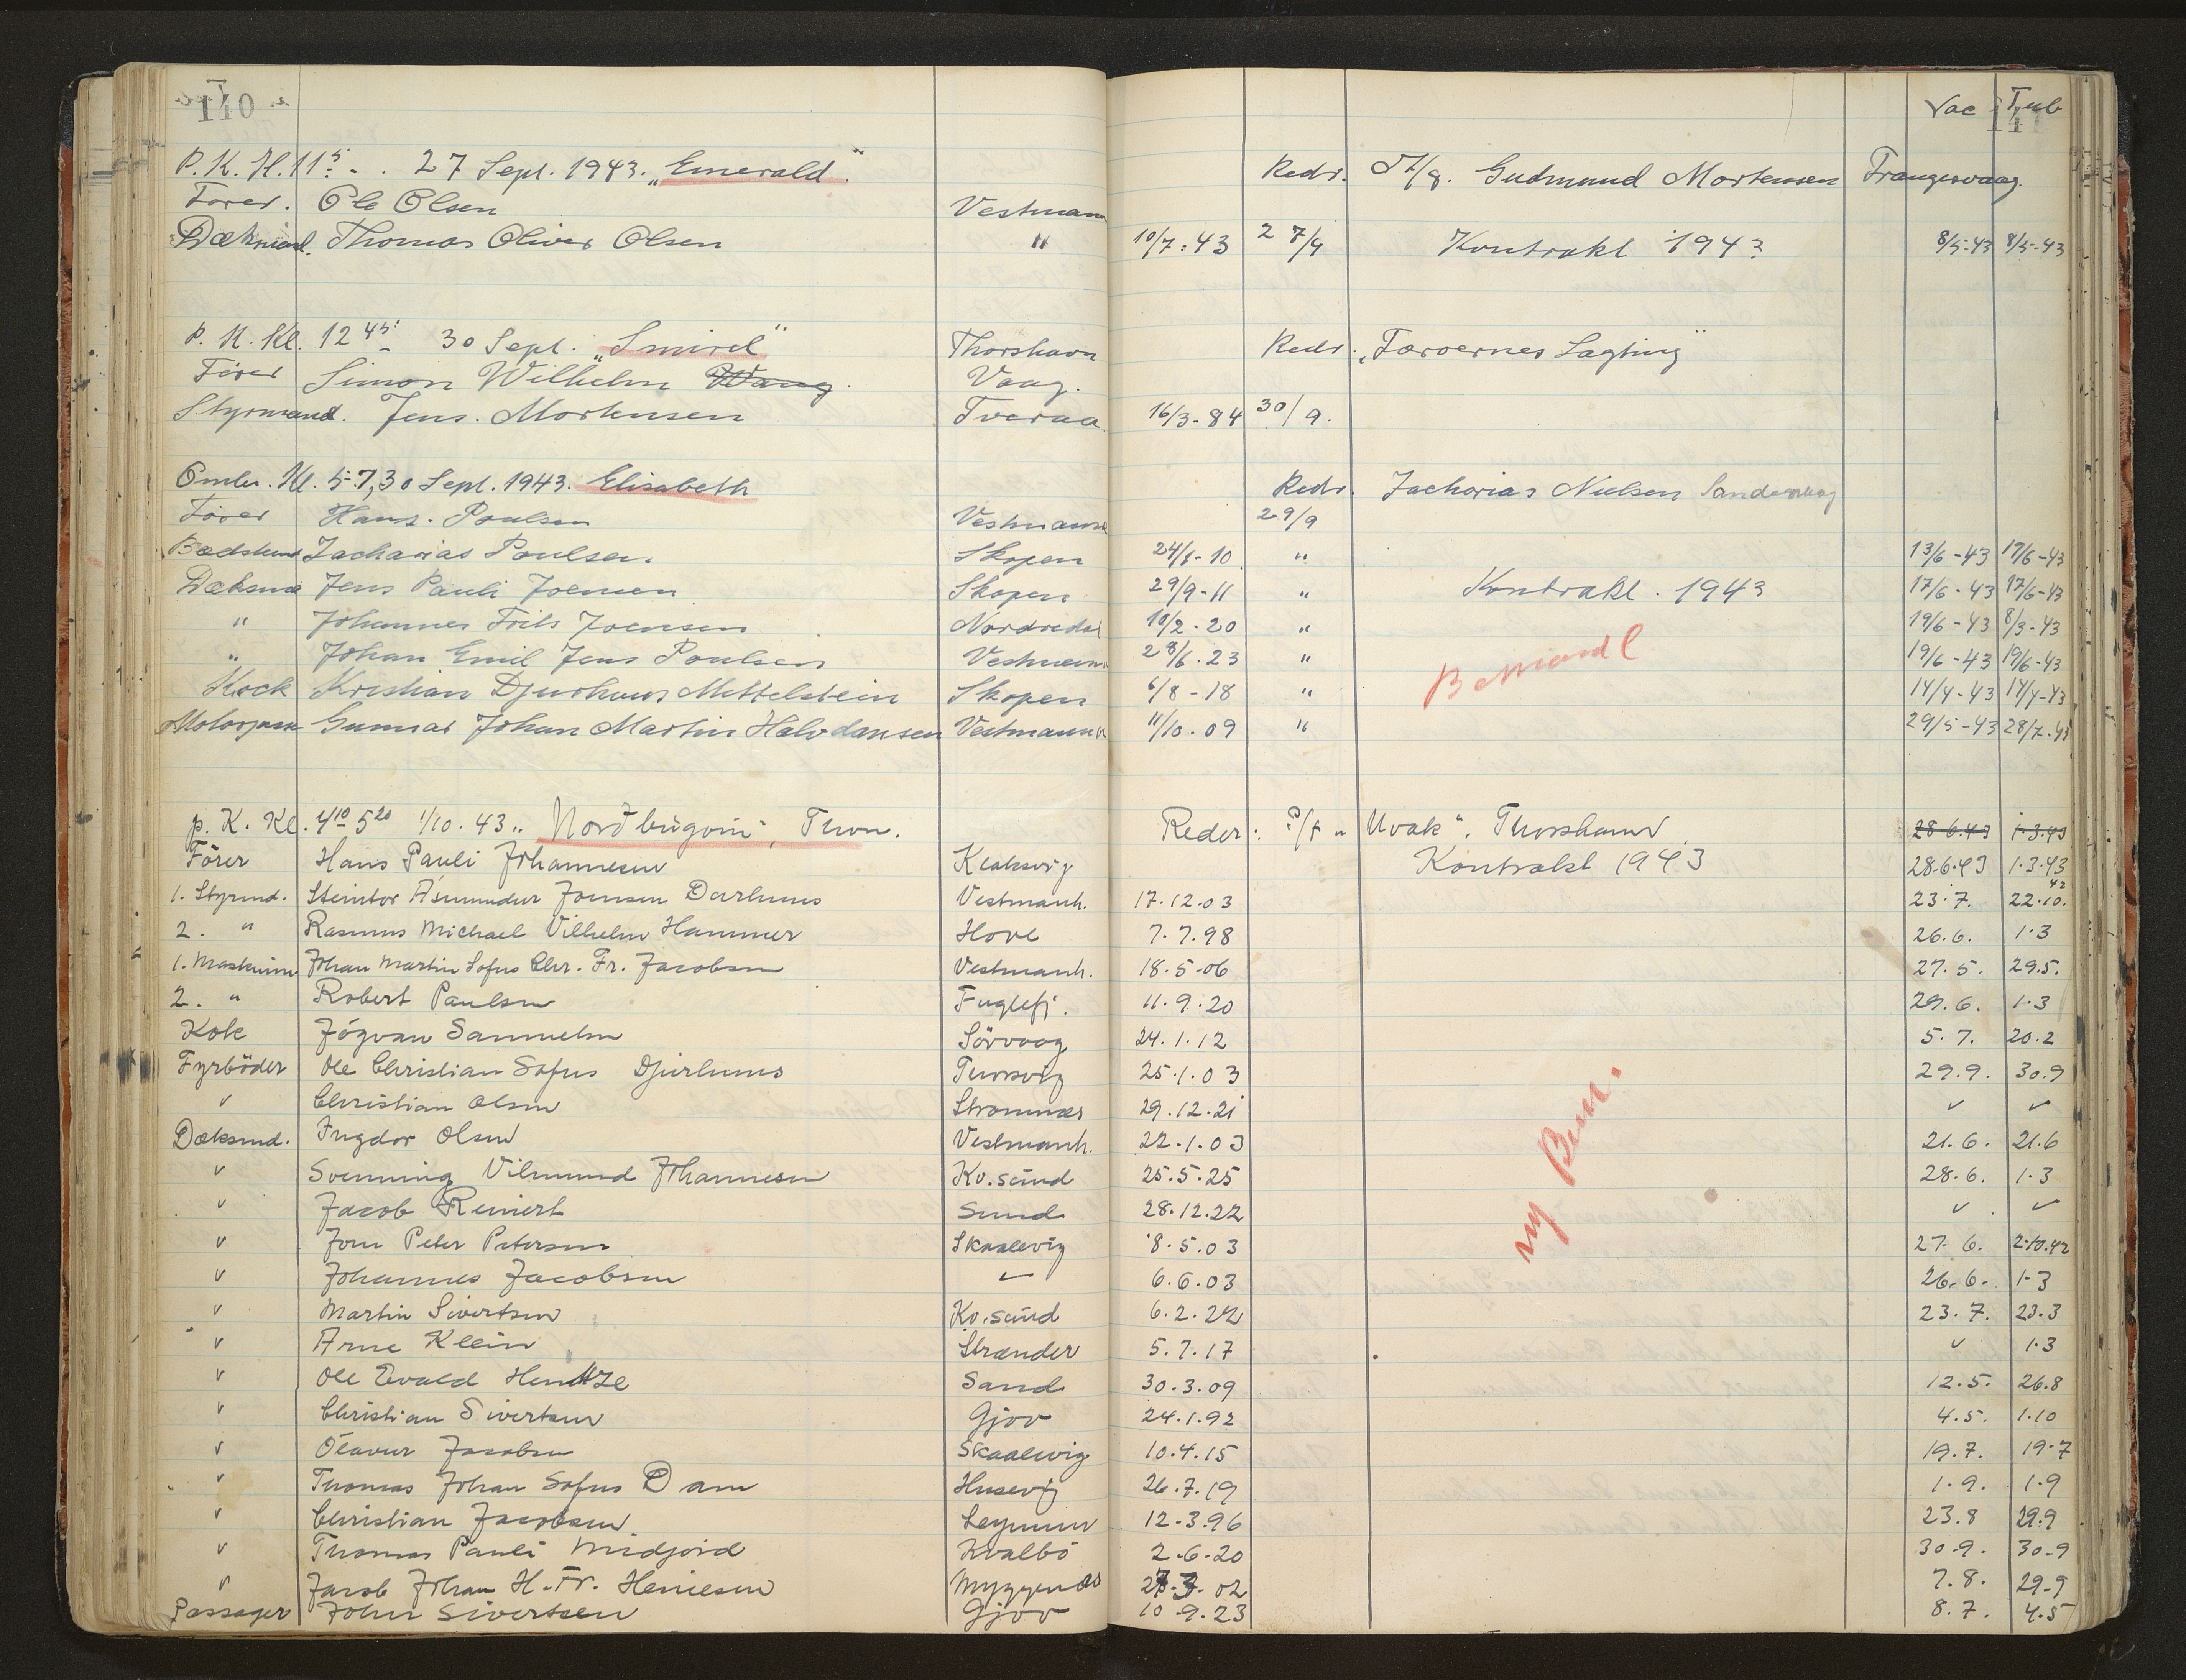 140
Vac Tub
P. K. Kl. 11 5 - . 27 Sept. 1943. „Emerald" Redr. A/S. Gudmund Mortensen Frangesvaag.
Fører. Ole Olsen Vestmann
Dæksmd. Thomas Oliver Olsen " 10/7-43 27/9 Kontrakt 1943 8/5-43 8/5-43
P. K. Kl. 12 45 - 30 Sept. „Smiril" Thorshavn Redr. „Færøernes Lagting"
Fører Simon Wilhelm Waag. Vaag.
Styrmand. Jens. Mortensen Tveraa 16/3-84 30/9.
Omb. Kl. 5-7, 30 Sept. 1943. Elisabeth Redr. Zacharias Nielsen Sandevaag
Fører Hans. Poulsen Vestmann 29/9
Bedstemd Zacharias Poulsen. Skopen 24/8-10 " 13/6-43 17/6-43
Dæksmd Jens Pauli Joensen Skopen 29/9-11 " Kontrakt. 1943 17/6-43 17/6-43
" Johannes Frits Joensen Nordredal 10/2-20 " 19/6-43 8/3-43
" Johan Emil Jens Poulsen Vestmann 28/6-23 " 19/6-43 19/6-43
Kock Kristian Djurhuus Mettelstein Skopen 6/8-18 " 14/4-43 14/4-43
Motorpass Gunnar Johan Martin Halvdansen Vestmann 11/10-09 " 29/5-43 28/7-43
P. K. Kl. 4 10 - 5 20 1/10.43 „Nordbúgvin", Thvn. Reder: P/f „Uvak". Thorshavn 28.6.43 1.3.43
Fører Hans Pauli Johannesen Klaksvig Kontrakt 1943 28.6.43 1.3.43
1. Styrmd. Steintor Ásmundur Joensen Darhuus Vestmanh. 17.12.03 23.7. 22.10. 42
2. " Rasmus Michael Vilhelm Hammer Hove 7.7.98 26.6. 1.3
1. Maskinm Johan Martin Sofus Chr. Fr. Jacobsen Vestmanh. 18.5-06 27.5. 29.5.
2. " Robert Paulsen Fuglefj. 11.9.20 29.6. 1.3
Kok Jógvan Samuelsen Sörvaag 24.1.12 5.7. 20.2
Fyrböder Ole Christian Sofus Djurhuus Thorsvig 25.1.03 29.9. 30.9
v Christian Olsen Strømnæs 29.12.21 v v
Dæksmd. Ingdor Olsen Vestmanh. 22.1.03 21.6. 21.6
v Svenning Vilmund Johannesen Kv.sund 25.5.25 28.6. 1.3
v Jacob Reinert Sund 28.12.22 v v
v Jorn Peter Petersen Skaalevig 8.5.03 27.6. 2.10.42
v Johannes Jacobsen v 6.6.03 26.6. 1-3
v Martin Sivertsen Kv.sund 6.2.22 23.7. 23.3
v Arne Klein Strænder 5.7.17 v 1.3
v Ole Evald Hentze Sand 30.3.09 12.5. 26.8
v Christian Sivertsen Gjov 24.1.92 4.5. 1.10
v Ólavur Jacobsen Skaalevig 10.4.15 19.7. 19.7
v Thomas Johan Sofus Dam Husevig 26.7.19 1.9. 1.9
v Christian Jacobsen Leynum 12-3.96 23.8 29.9
v Thomas Pauli Midjord Kvalbö 2.6.20 30.9. 30.9
v Jacob Johan H. Fr. Heinesen Myggenæs 27.3-02 7.8. 29.9
Passager John Sivertsen Gjov 10.9.23 8.7. 4.5
ny Bem.